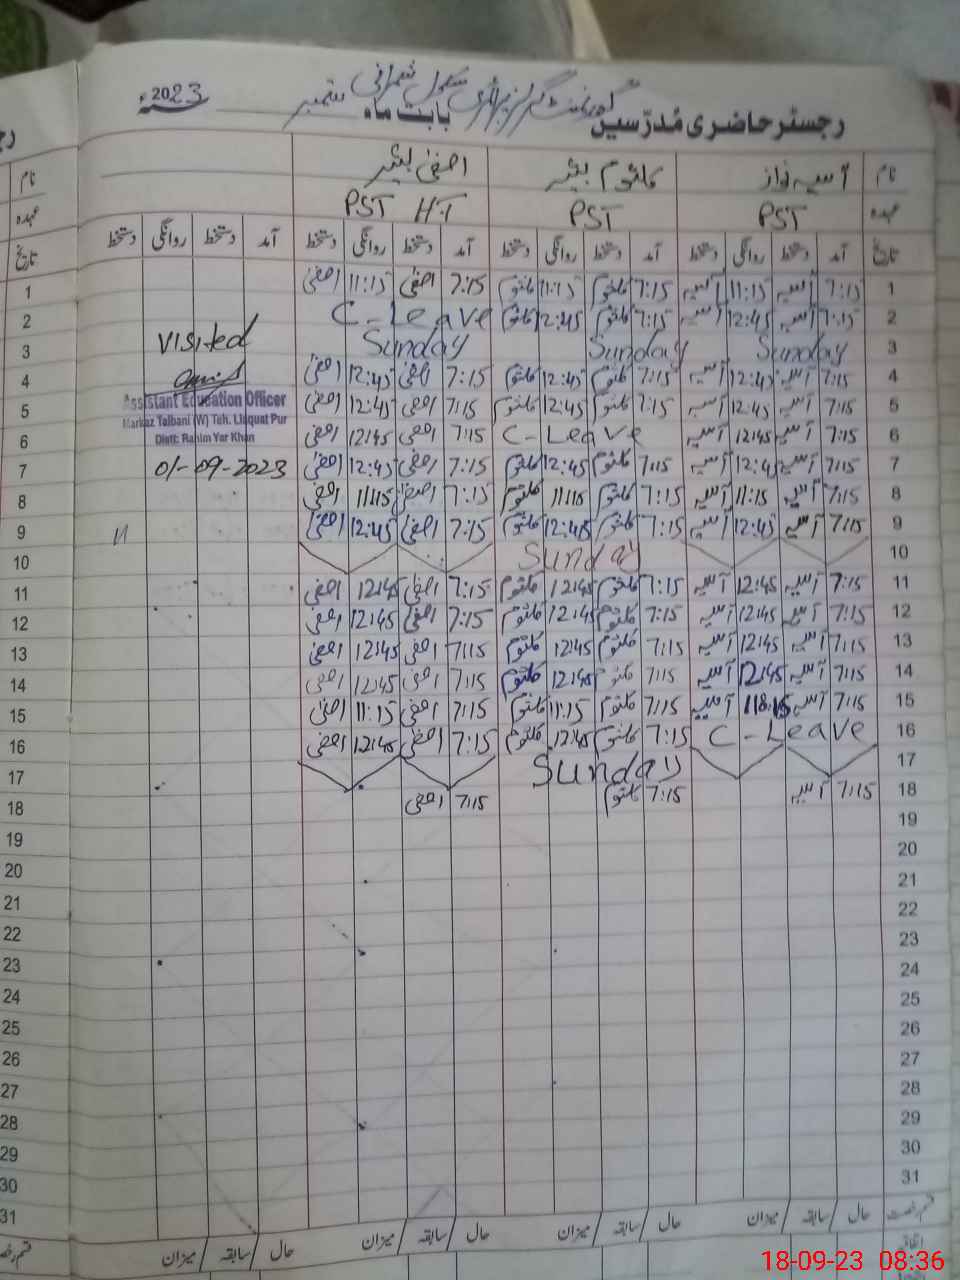 رجسٹر حاضری مُدرّسین گورنمنٹ گرلز پرائمری سکول بابت ماہ ستمبر 2023ء
نام آسیہ نواز کلثوم بشیر
عہدہ PST PST PST H.T
تاریخ آمد دستخط روانگی دستخط آمد دستخط روانگی دستخط آمد دستخط روانگی دستخط آمد دستخط روانگی دستخط
1 7:15 آسیہ 11:15 آسیہ 7:15 کلثوم 11:15 کلثوم 7:15 11:15 1
2 7:15 آسیہ 12:45 آسیہ 7:15 کلثوم 12:45 کلثوم C-Leave 2
3 Sunday Sunday Sunday Visited 3
4 7:15 آسیہ 12:45 آسیہ 7:15 کلثوم 12:45 کلثوم 7:15 12:45 4
Assistant Education Officer
5 7:15 آسیہ 12:45 آسیہ 7:15 کلثوم 12:45 کلثوم 7:15 12:45 5
Markaz Talbani (W) Teh. Liaquat Pur
6 7:15 آسیہ 12:45 آسیہ C-Leave 7:15 12:45 6
Distt: Rahim Yar Khan
7 7:15 آسیہ 12:45 آسیہ 7:15 کلثوم 12:45 کلثوم 7:15 12:45 01-09-2023 7
8 7:15 آسیہ 11:15 آسیہ 7:15 کلثوم 11:15 کلثوم 7:15 11:15 8
9 7:15 آسیہ 12:45 آسیہ 7:15 کلثوم 12:45 کلثوم 7:15 12:45 9
10 Sunday 10
11 7:15 آسیہ 12:45 آسیہ 7:15 کلثوم 12:45 کلثوم 7:15 12:45 11
12 7:15 آسیہ 12:45 آسیہ 7:15 کلثوم 12:45 کلثوم 7:15 12:45 12
13 7:15 آسیہ 12:45 آسیہ 7:15 کلثوم 12:45 کلثوم 7:15 12:45 13
14 7:15 آسیہ 12:45 آسیہ 7:15 کلثوم 12:45 کلثوم 7:15 12:45 14
15 7:15 آسیہ آسیہ 7:15 کلثوم 11:15 کلثوم 7:15 11:15 15
16 C-Leave 7:15 کلثوم 12:45 کلثوم 7:15 12:45 16
17 Sunday 17
18 7:15 آسیہ 7:15 کلثوم 7:15 18
19 19
20 20
21 21
22 22
23 23
24 24
25 25
26 26
27 27
28 28
29 29
30 30
31 31
حال / سابقہ / میزان حال / سابقہ / میزان حال / سابقہ / میزان حال / سابقہ / میزان
18-09-23 08:36